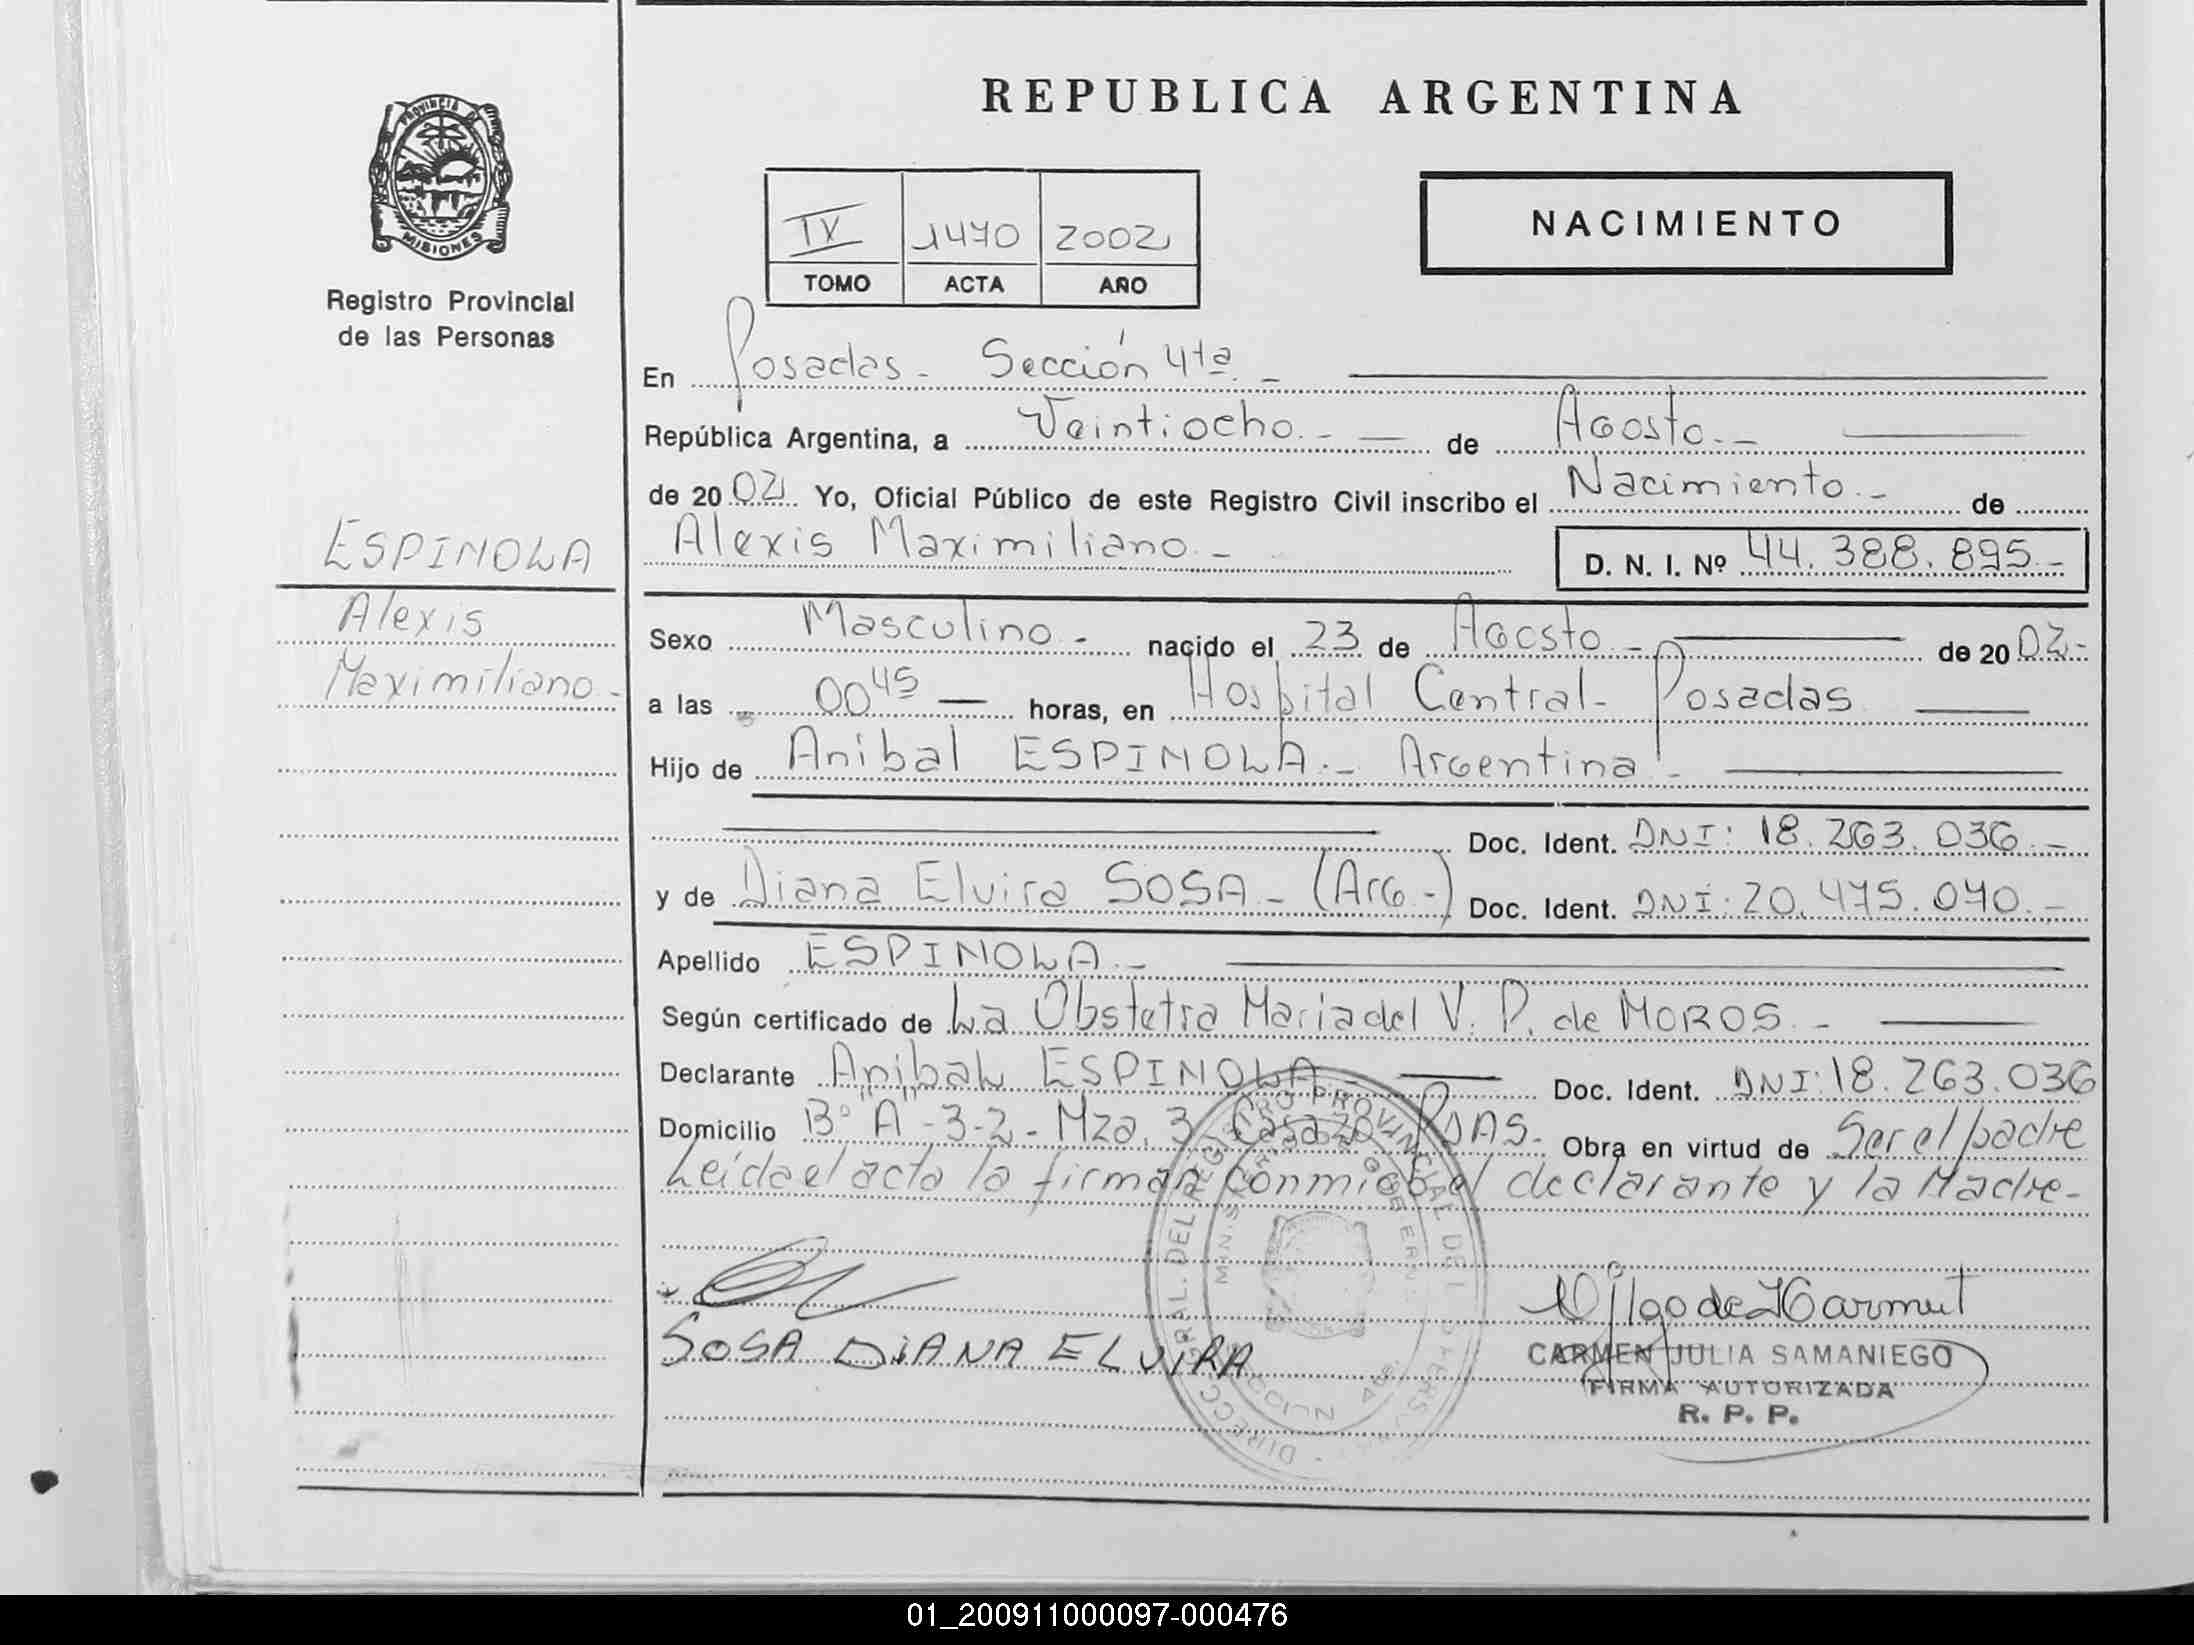 REPUBLICA ARGENTINA
PROVINCIA DE
MISIONES
Registro Provincial
de las Personas
NACIMIENTO
IV 1470 2002
TOMO ACTA AÑO
En Posadas - Sección 4ta. -
República Argentina, a Veintiocho. - de Agosto. -
de 2002 Yo, Oficial Público de este Registro Civil inscribo el Nacimiento. - de
Alexis Maximiliano. - D. N. I. Nº 44.388.895.-
ESPINOLA
Alexis
Maximiliano. -
Sexo Masculino - nacido el 23 de Agosto. - de 2002-
a las 00 45 horas, en Hospital Central - Posadas
Hijo de Anibal ESPINOLA. - Argentina -
Doc. Ident. DNI: 18.263.036.-
y de Diana Elvira SOSA - (Arg.-) Doc. Ident. DNI: 20.475.070.-
Apellido ESPINOLA. -
Según certificado de La Obstetra Maria del V. P. de MOROS. -
Declarante Anibal ESPINOLA - Doc. Ident. DNI: 18.263.036
Domicilio Bº "A" - 3-2 - Mza. 3 Casa 20 - Psas. Obra en virtud de Ser el padre
Leida el acta la firman conmigo el declarante y la Madre -
DIRECC RAL. DEL REGISTRO PROVINCIAL DE LAS PERSONAS
MINISTERIO DE GOBIERNO
SOSA DIANA ELVIRA
CARMEN JULIA SAMANIEGO
FIRMA AUTORIZADA
R. P. P.
01_200911000097-000476